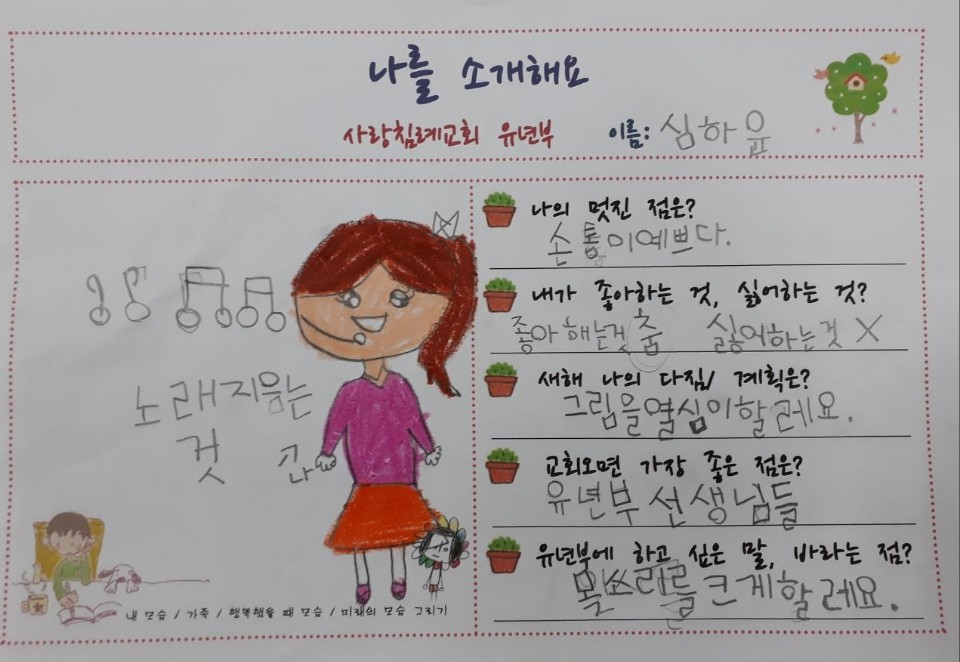 나를 소개해요
사랑침례교회 유년부 이름: 심하윤
노래지음는
것
나의 멋진 점은?
손톱이예쁘다.
내가 좋아하는 것, 싫어하는 것?
좋아해는것 춤 싫어하는것 X
새해 나의 다짐/ 계획은?
그림을열심이할레요.
교회오면 가장 좋은 점은?
유년부 선생님들
유년부에 하고 싶은 말, 바라는 점?
크게할레요.
내 모습 / 가족 / 행복했을 때 모습 / 미래의 모습 그리기